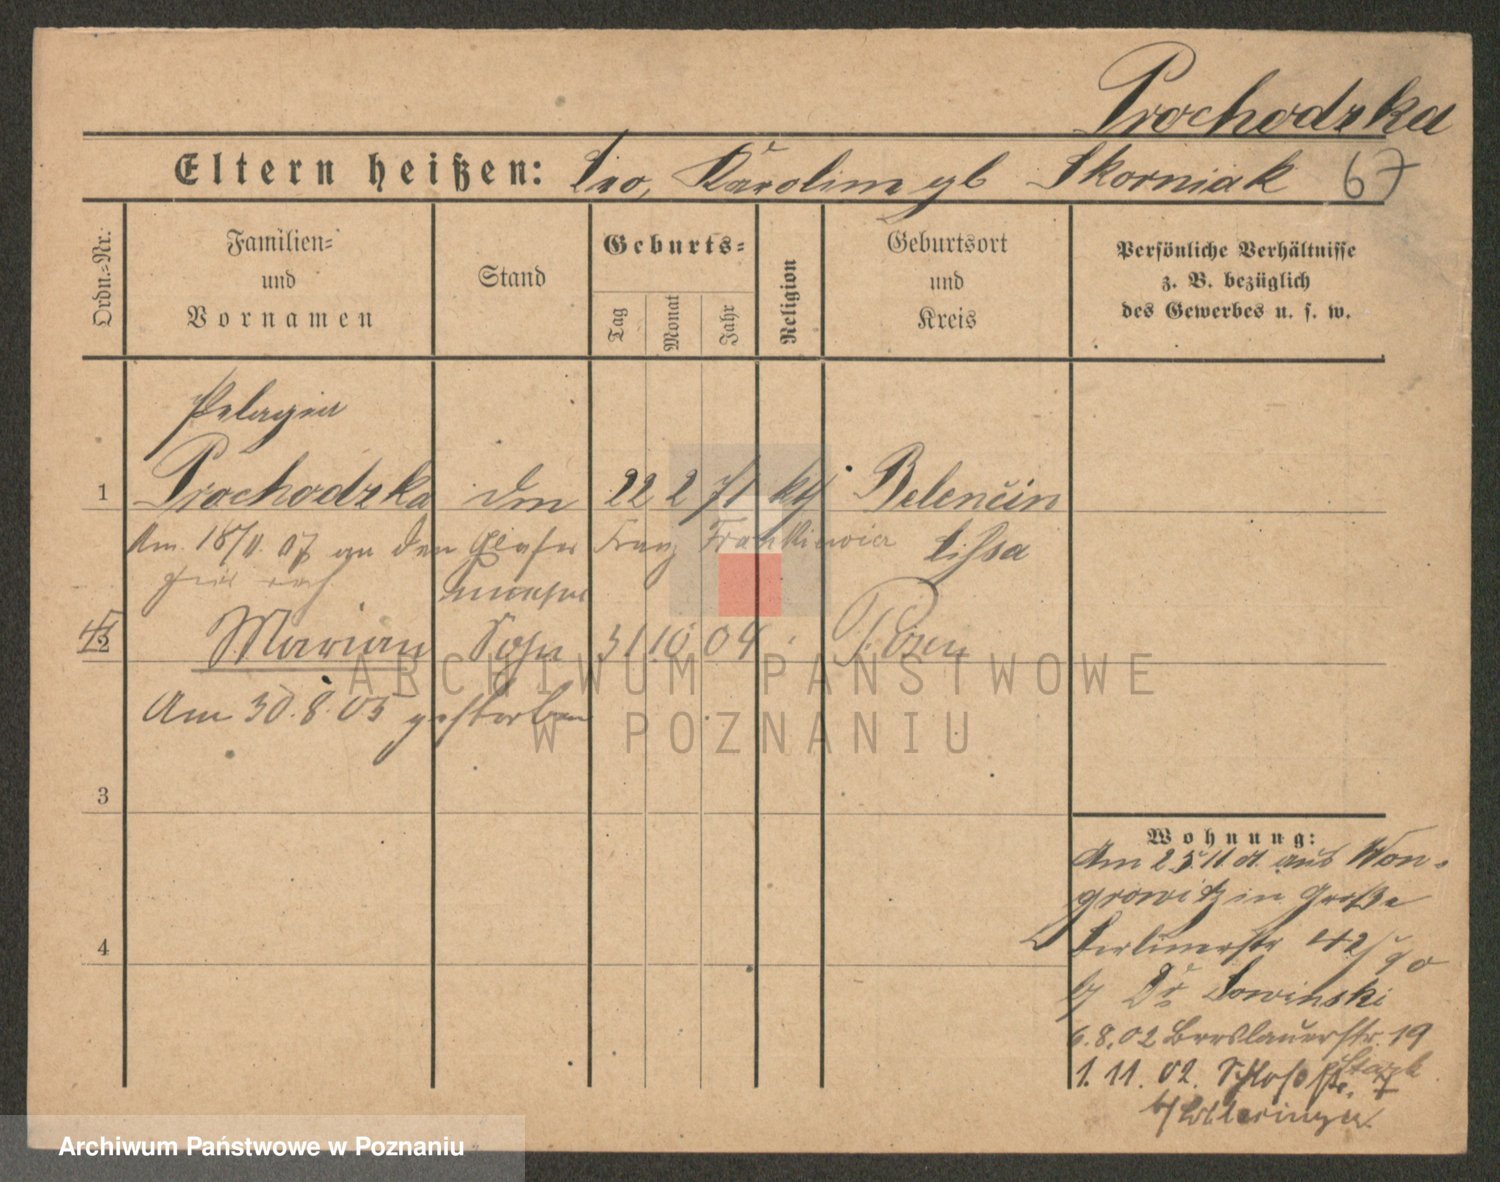 Prochodzka
Eltern heißen: Leo, Karoline gb Skorniak 67
Ordn.-Nr.
Familien-
und
Vornamen
Stand
Geburts-
Tag
Monat
Jahr
Religion
Geburtsort
und
Kreis
Persönliche Verhältnisse
z. B. bezüglich
des Gewerbes u. s. w.
Pelagia
1 Prochodzka 22 2 71 kth Belenčin
Am 18/ 07 an den Glaser Franz Frankiewicz Lissa
2 Marian Sohn 31 10 04 Posen
Am 30.8.05 gestorben
3
4
Wohnung:
Am 25 11 01 aus Won-
growitz in Große
Berlinerstr 42/
b/ Dr Lowinski
6.8.02 Breslauerstr. 19
1.11.02. Schloßstr. 7
ARCHIWUM PAŃSTWOWE
W POZNANIU
Archiwum Państwowe w Poznaniu